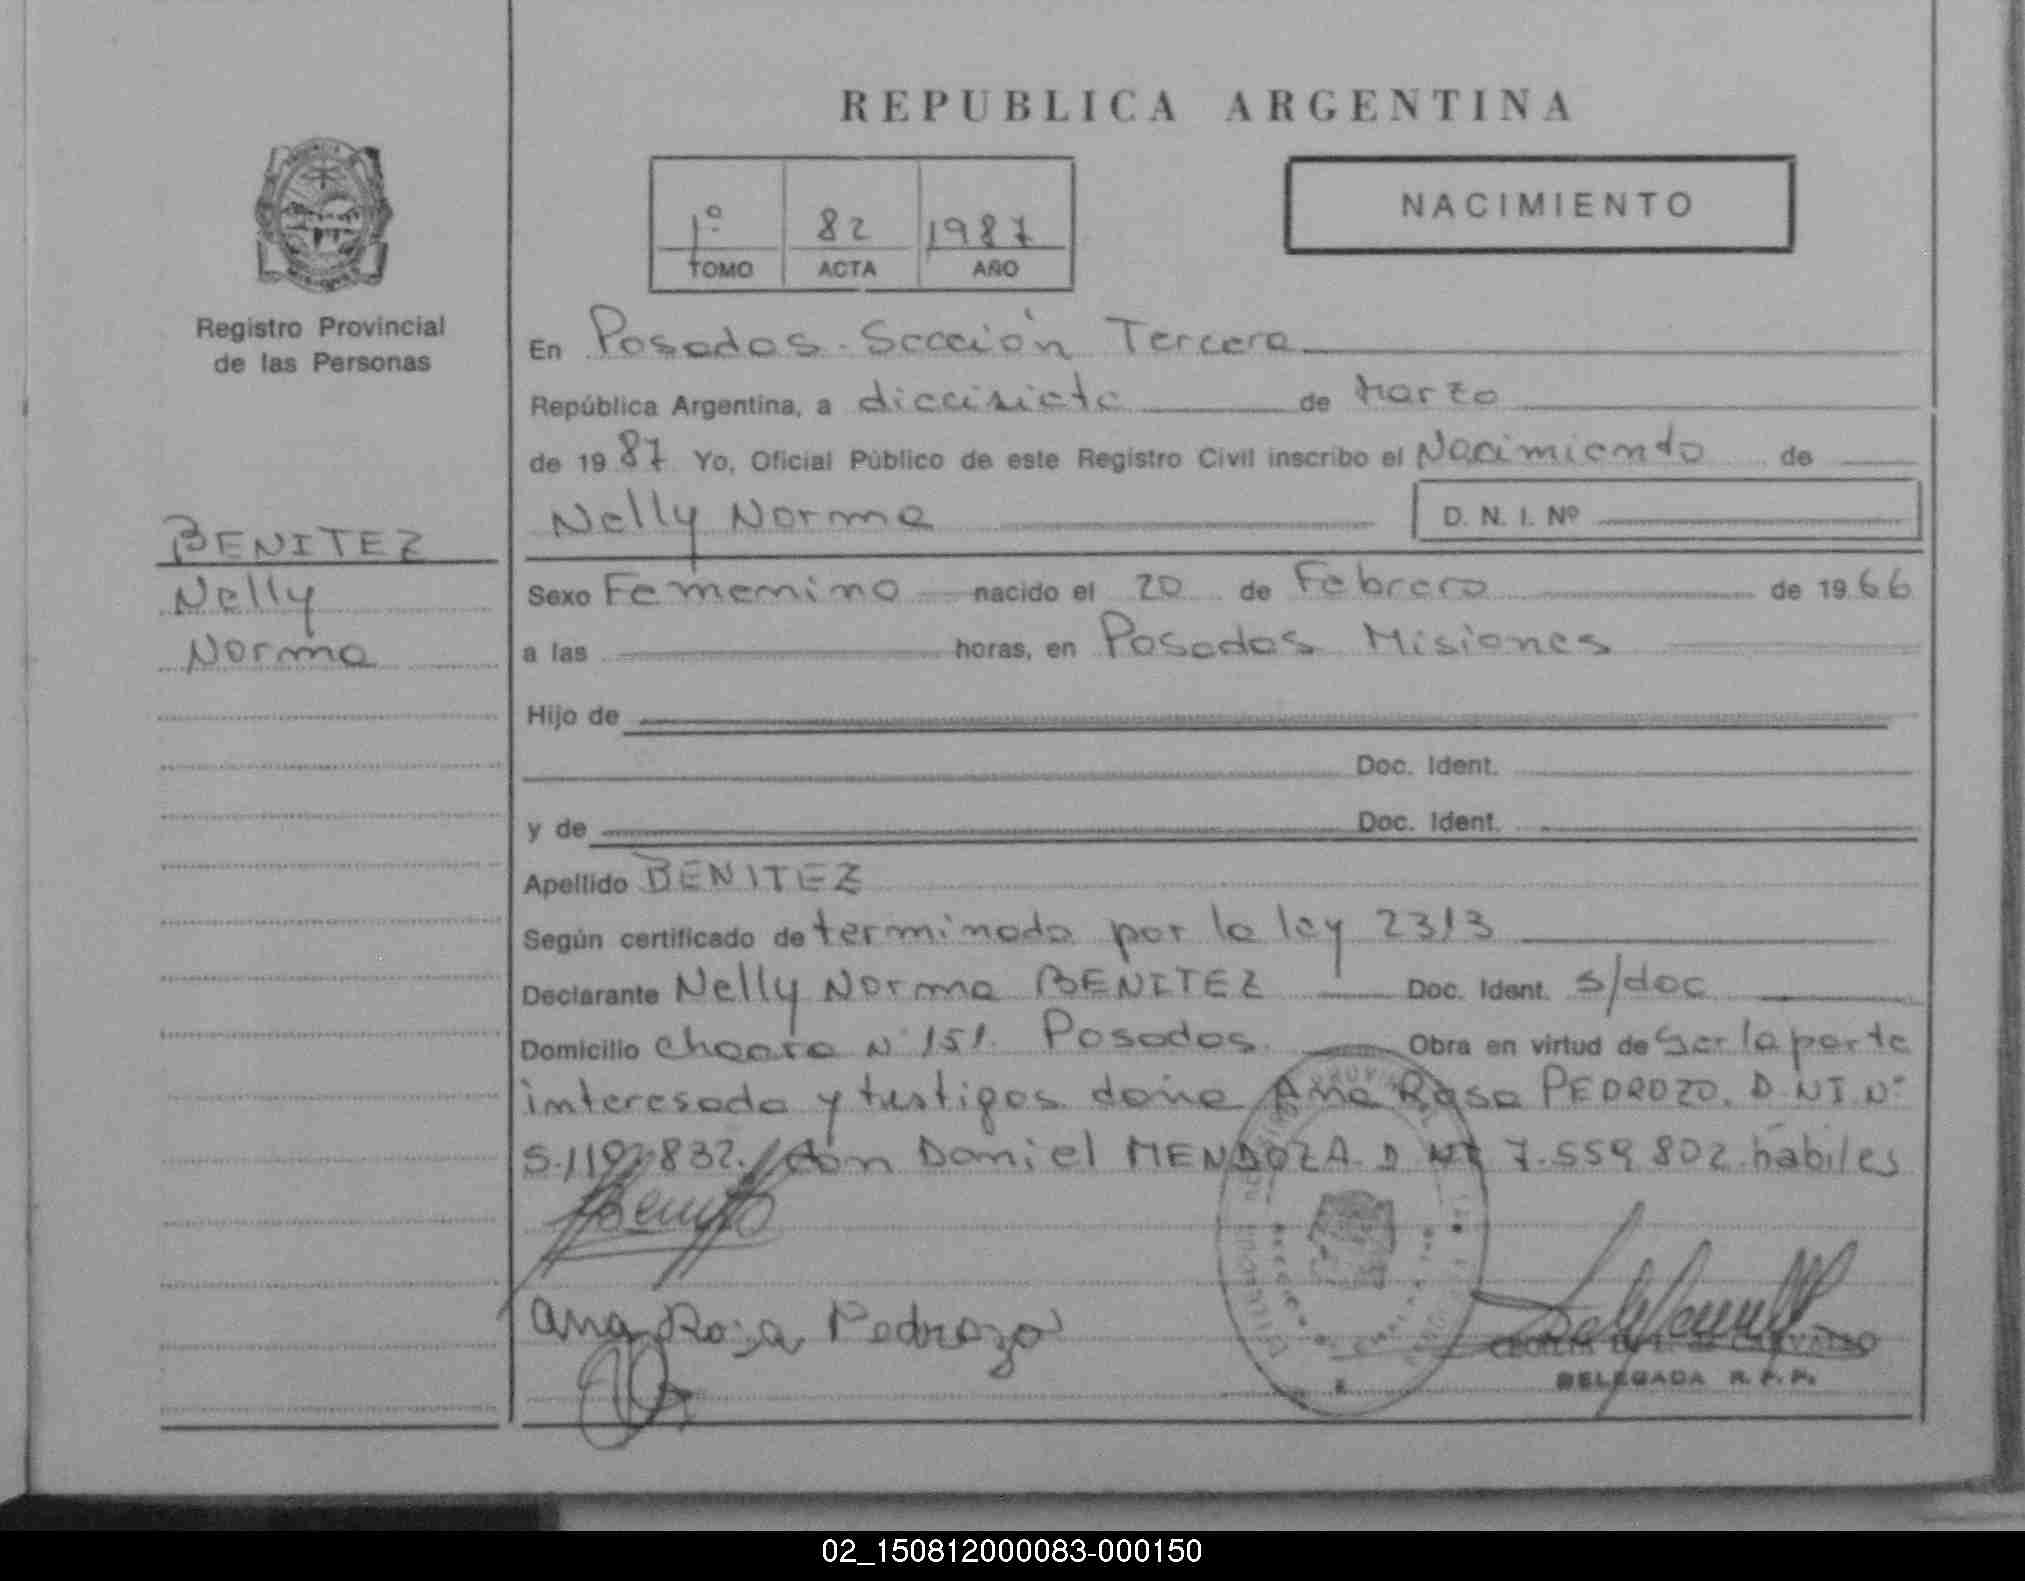 REPUBLICA ARGENTINA
1º 82 1987
TOMO ACTA AÑO
NACIMIENTO
Registro Provincial
de las Personas
BENITEZ
Nelly
Norma
En Posadas. Sección Tercera
República Argentina, a diecisiete de Marzo
de 1987 Yo, Oficial Público de este Registro Civil inscribo el Nacimiento de
Nelly Norma D. N. I. Nº
Sexo Femenino nacido el 20 de Febrero de 1966
a las horas, en Posadas Misiones
Hijo de
Doc. Ident.
y de Doc. Ident.
Apellido BENITEZ
Según certificado de terminada por la ley 2313
Declarante Nelly Norma BENITEZ Doc. Ident. s/doc
Domicilio Chacra N° 151. Posadas. Obra en virtud de ser la parte
interesada y testigos doña Ana Rosa PEDROZO. D.N.I.Nº
don Daniel MENDOZA. D NI 7.559.802 habiles
Ana Rosa Pedrozo
DELEGADA R. P. P.
02_150812000083-000150